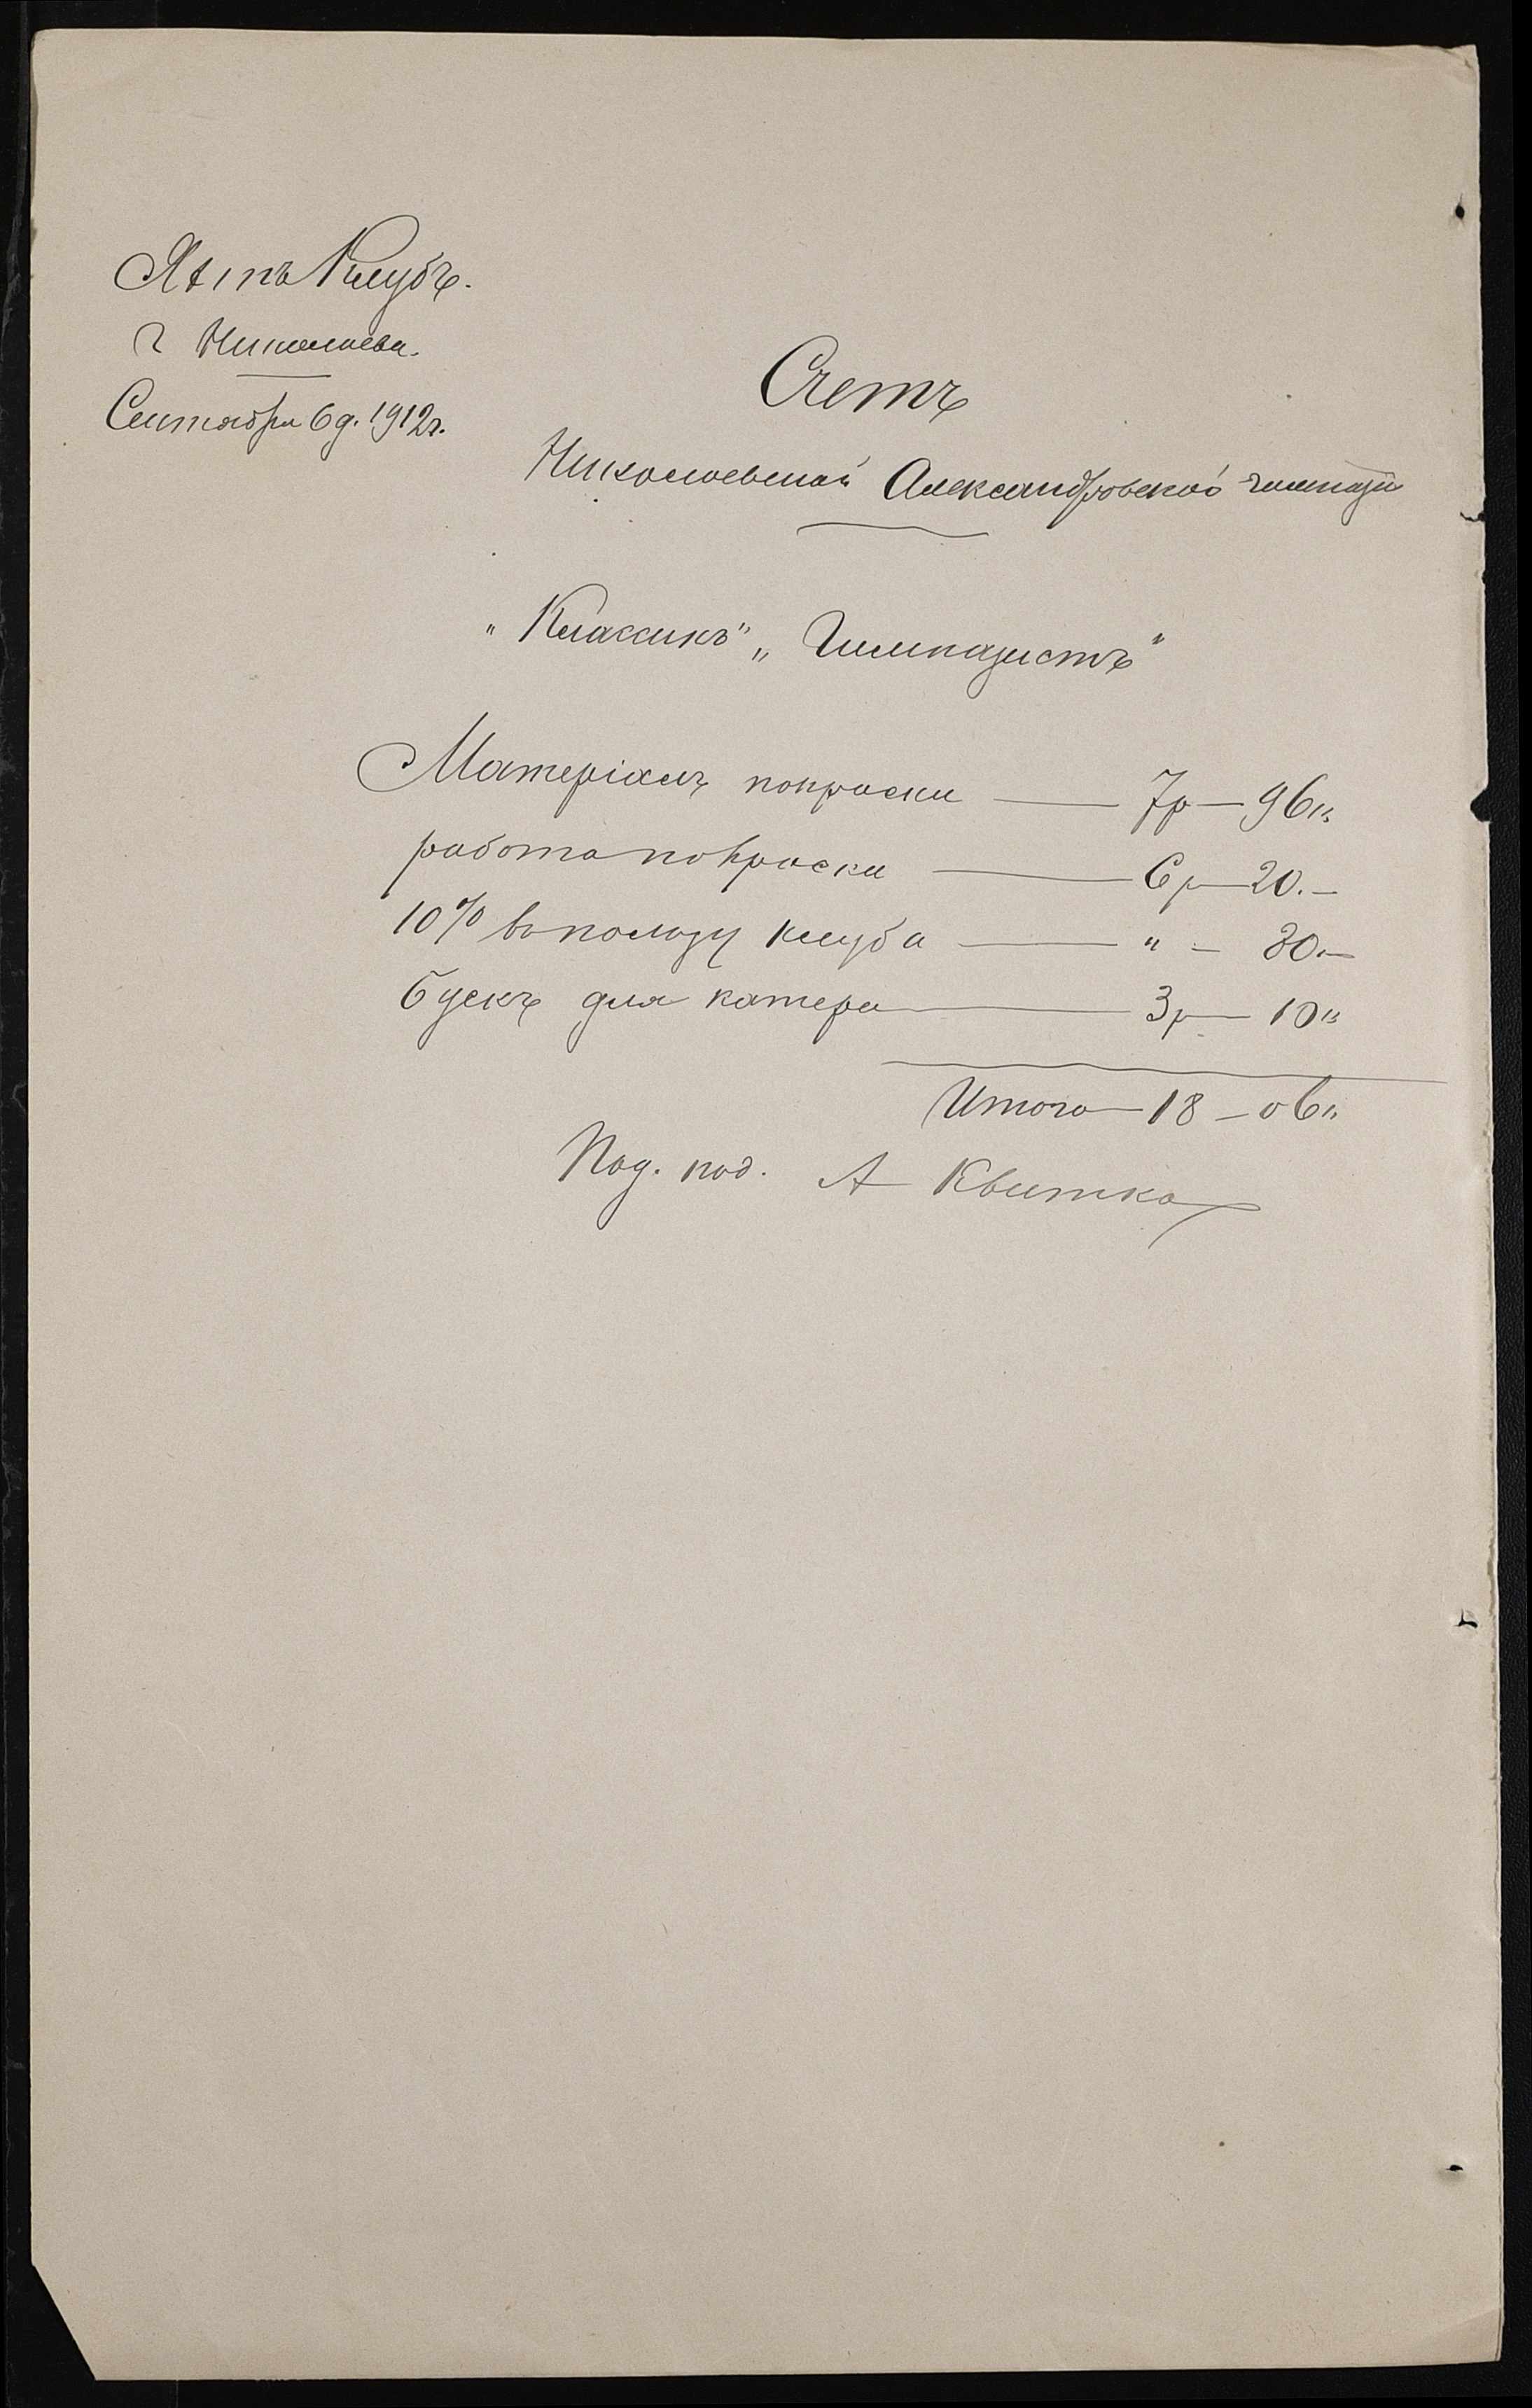 Яхтъ Клубъ.
г Николаева.
Сентября 6 д. 1912 г.
Счетъ
Николаевской Александровской гимназіи
"Классикъ" „Гимназистъ"
Матеріалъ покраски — 7р — 96к
работа покраски — 6р — 20. —
10% въ пользу клуба — " — 80. —
Бускъ для катера — 3р — 10к
Итого — 18 — 06к
А Квитка